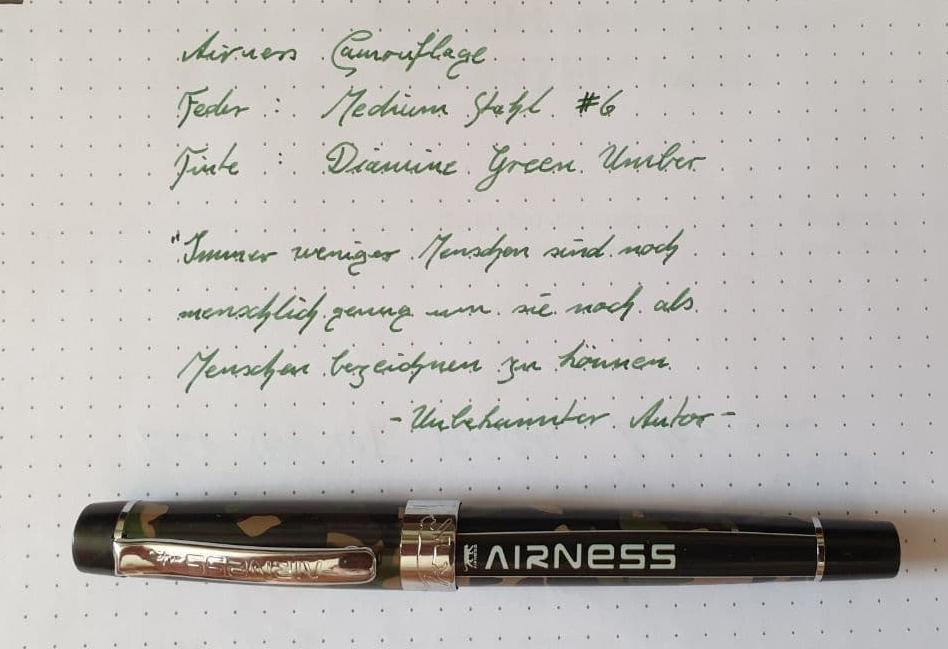 Airness Camouflage
Feder : Medium Stahl #6
Tinte : Diamine Green Umber
"Immer weniger Menschen sind noch
menschlich genug um sie noch als
Menschen bezeichnen zu können
- Unbekannter Autor -
AIRNESS
AIRNESS